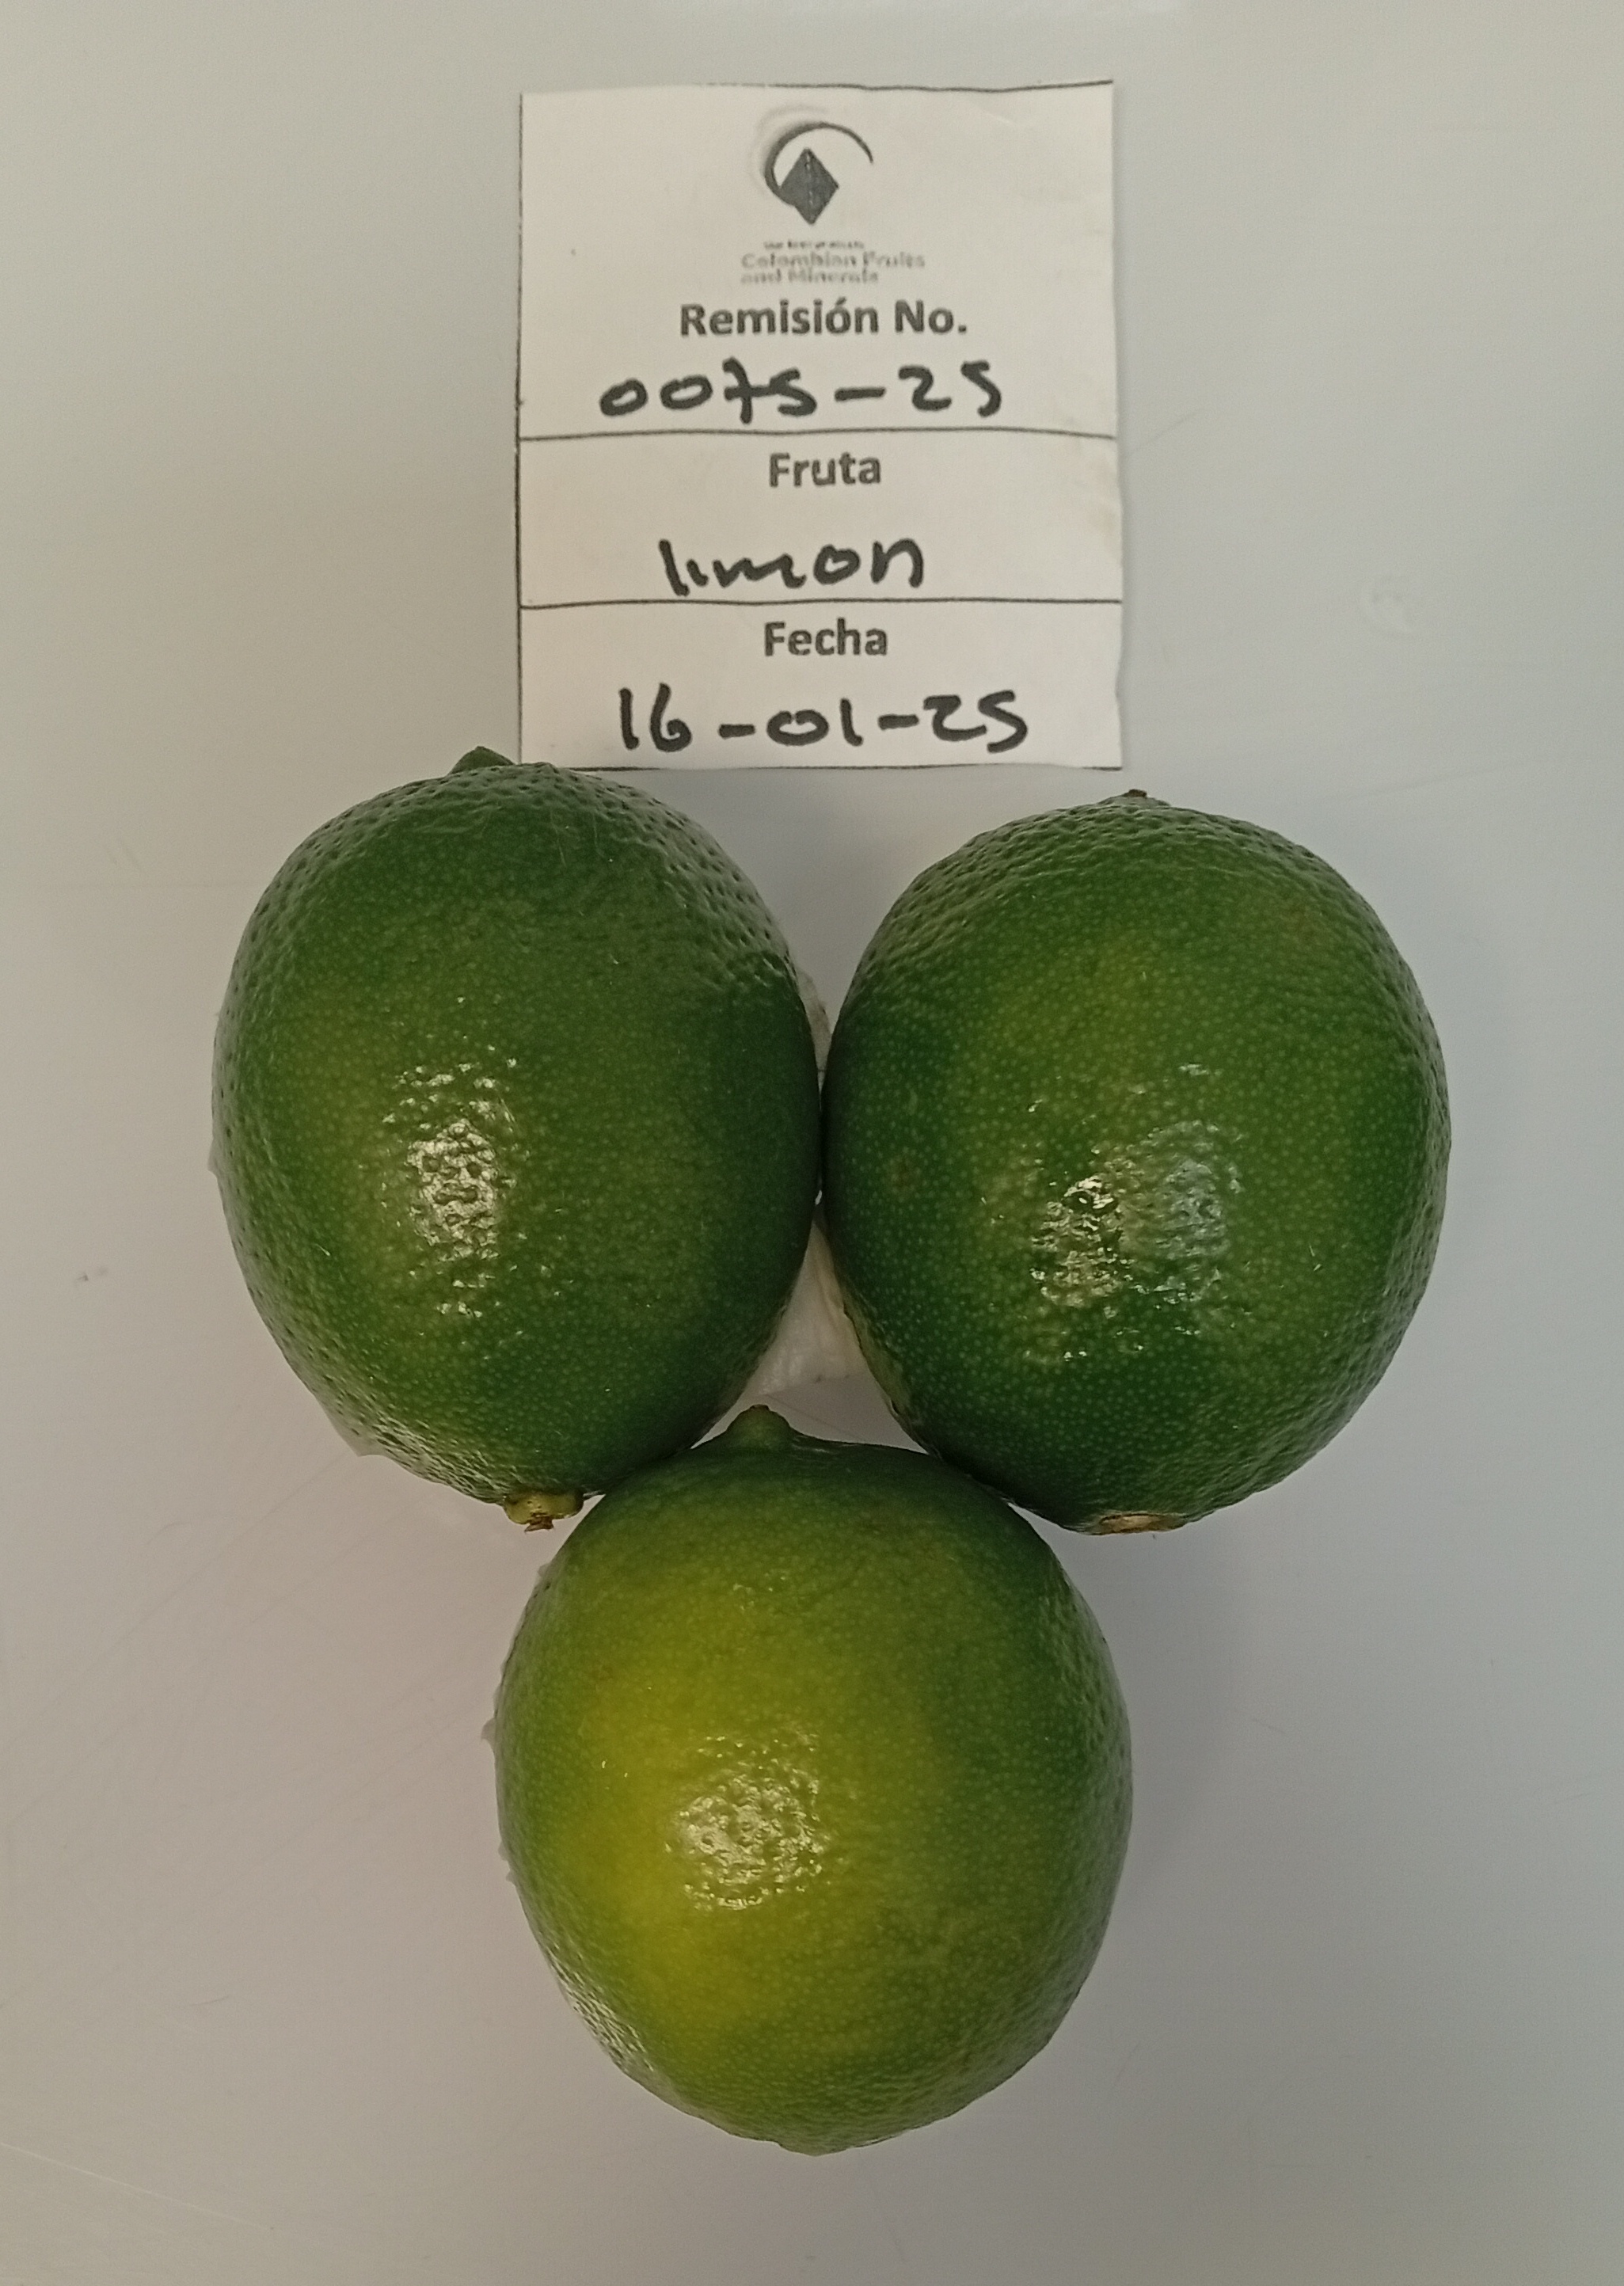 Colombian Fruits
and Minerals
Remisión No.
0075-25
Fruta
limon
Fecha
16-01-25